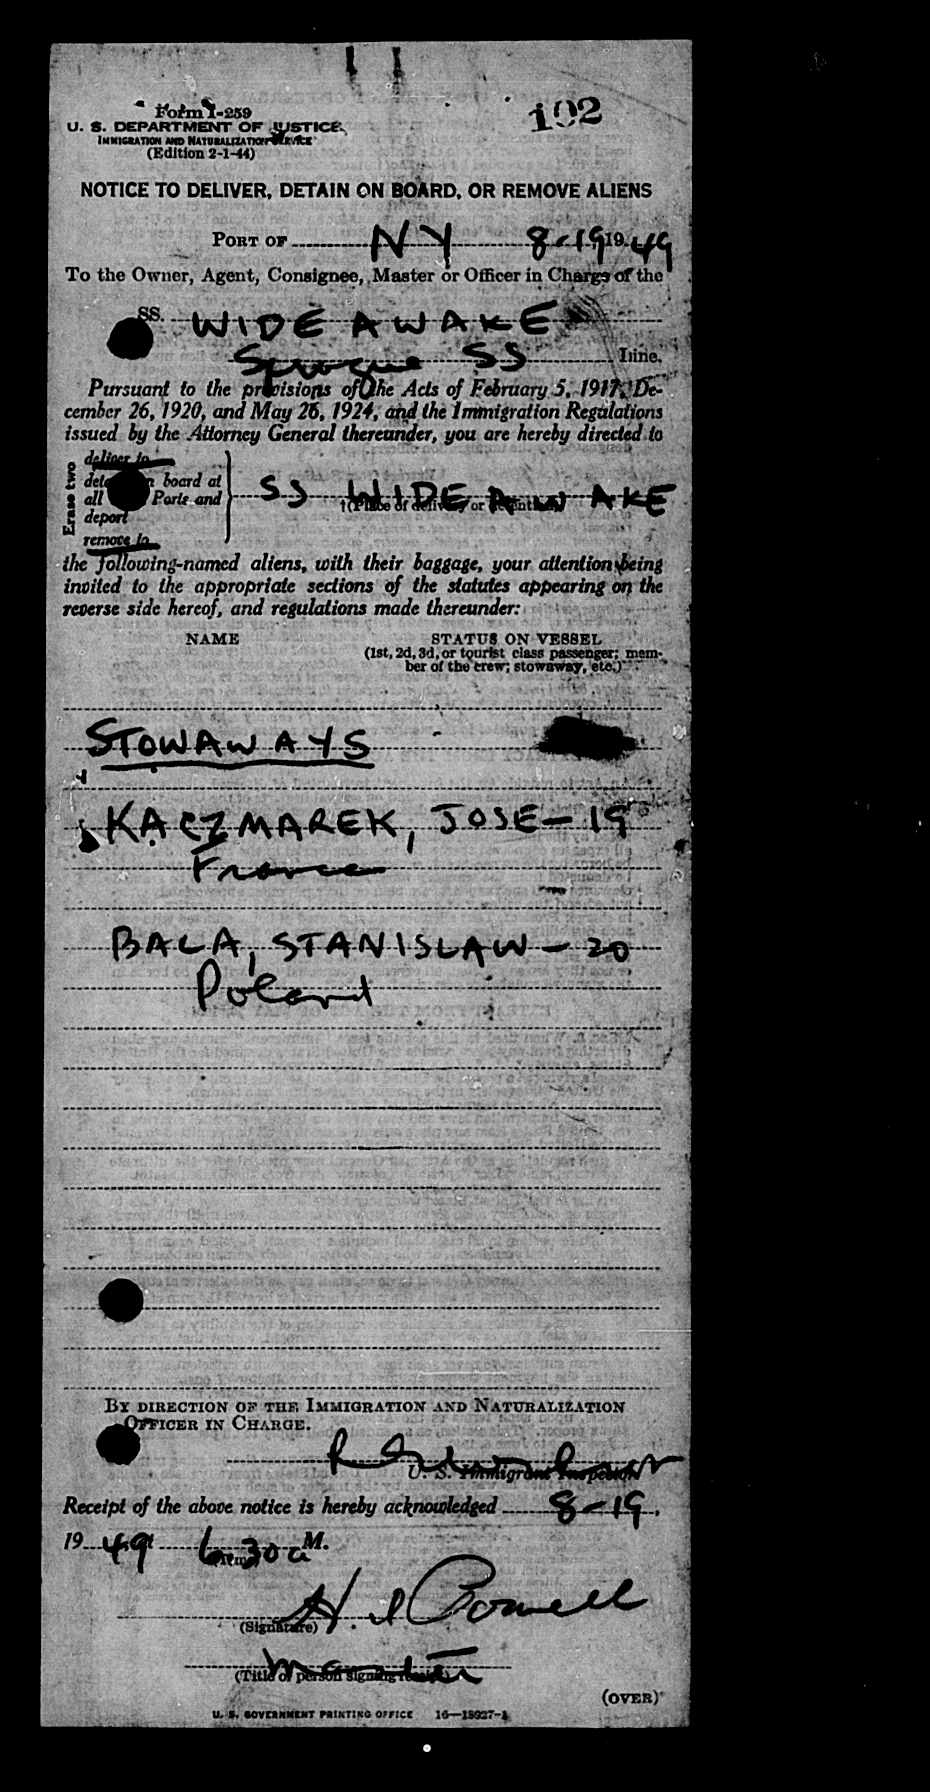 Form I-259
102
U. S. DEPARTMENT OF JUSTICE
IMMIGRATION AND NATURALIZATION SERVICE
(Edition 2-1-44)
NOTICE TO DELIVER, DETAIN ON BOARD, OR REMOVE ALIENS
PORT OF NY 8-19 1949
To the Owner, Agent, Consignee, Master or Officer in Charge of the
SS. WIDE AWAKE
Sprague SS Line.
Pursuant to the provisions of the Acts of February 5, 1917, De-
cember 26, 1920, and May 26, 1924, and the Immigration Regulations
issued by the Attorney General thereunder, you are hereby directed to
Erase two
deliver to
board at
all Ports and
deport
remove to
SS WIDE AWAKE
(Place of delivery or detention)
the following-named aliens, with their baggage, your attention being
invited to the appropriate sections of the statutes appearing on the
reverse side hereof, and regulations made thereunder:
NAME STATUS ON VESSEL
(1st, 2d, 3d, or tourist class passenger; mem-
ber of the crew; stowaway, etc.)
STOWAWAYS
KACZMAREK, JOSE - 19
France
BALA, STANISLAW - 20
Poland
BY DIRECTION OF THE IMMIGRATION AND NATURALIZATION
OFFICER IN CHARGE.
U. S. Immigrant Inspector
Receipt of the above notice is hereby acknowledged 8-19,
1949 6:30 a M.
H. Powell
(Signature)
Master
(Title of person signing receipt)
(OVER)
U. S. GOVERNMENT PRINTING OFFICE 16—18927-1